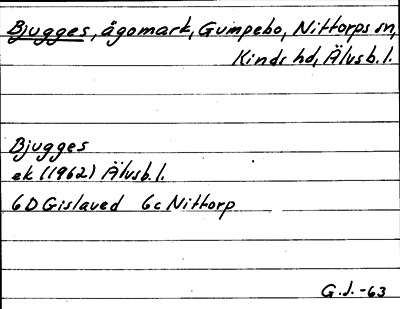 Bjugges, ägomark, Gumpebo, Nittorps sn,
Kinds hd, Älvsb. l.
Bjugges
ek (1962) Älvsb. l.
6D Gislaved 6c Nittorp
G.J. -63